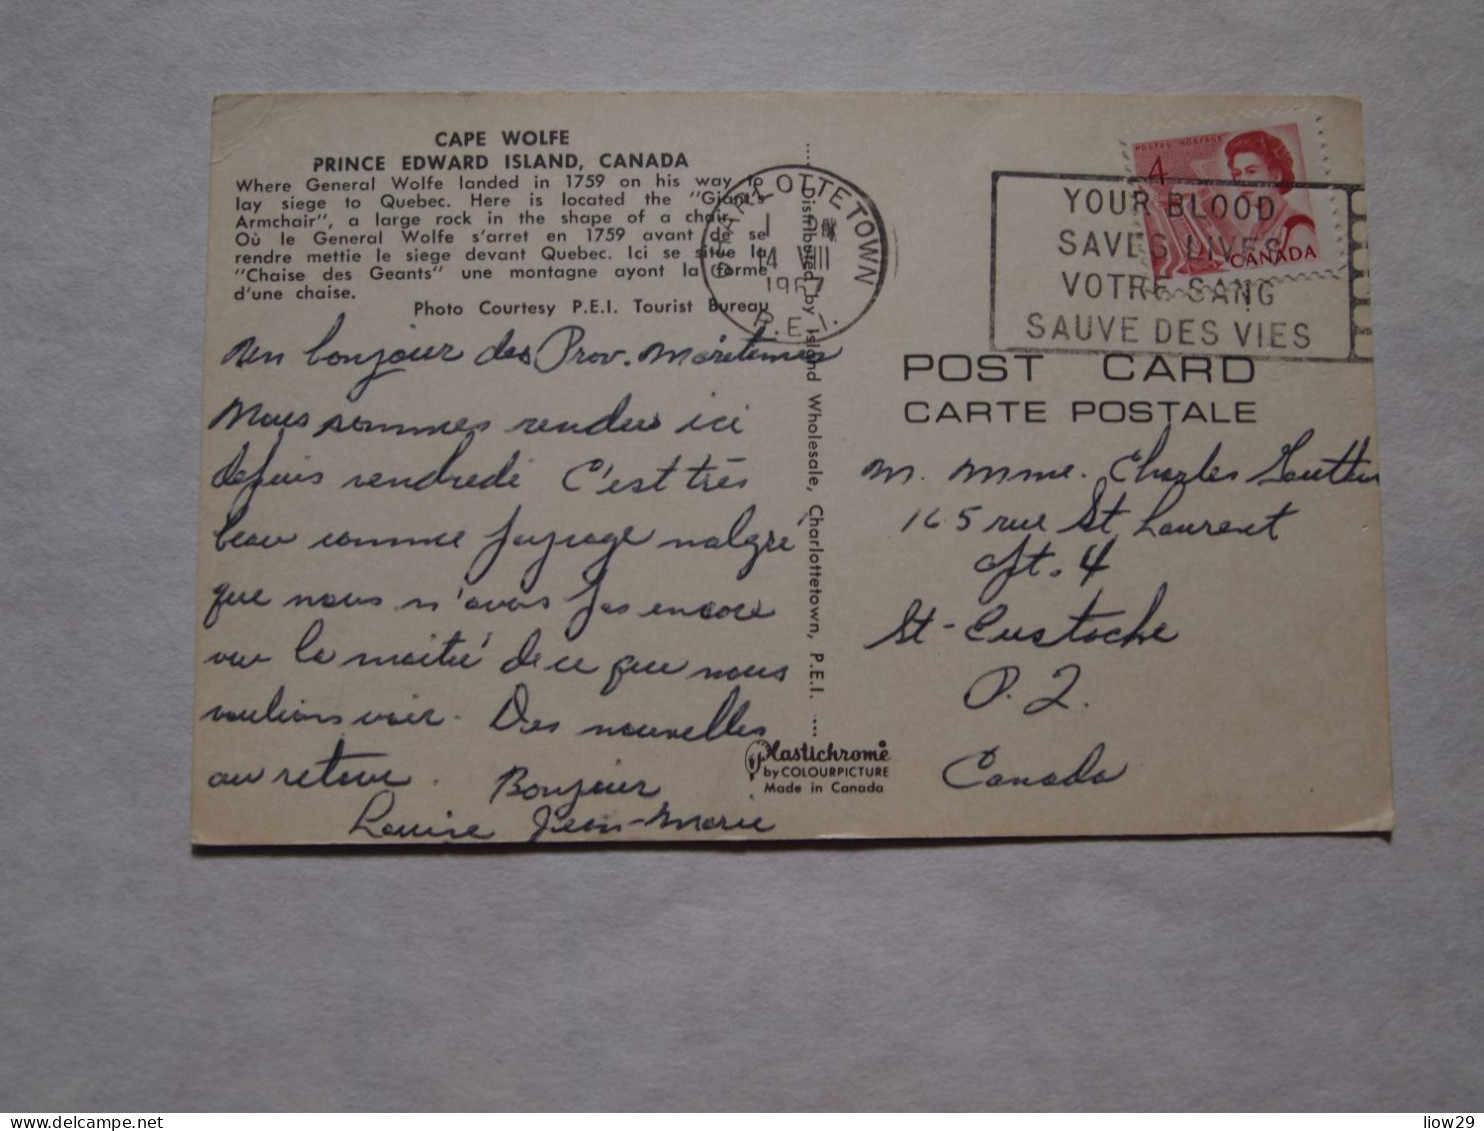 CAPE WOLFE
PRINCE EDWARD ISLAND, CANADA
Where General Wolfe landed in 1759 on his way to
lay siege to Quebec. Here is located the "Giant's
Armchair", a large rock in the shape of a chair.
Où le General Wolfe s'arret en 1759 avant de se
rendre mettie le siege devant Quebec. Ici se situe la
"Chaise des Geants" une montagne ayont la forme
d'une chaise.
Photo Courtesy P.E.I. Tourist Bureau
Un bonjour des Prov. Maretimes
Nous sommes rendus ici
depuis vendredi C'est très
beau comme paysage malgré
que nous n'avons pas encore
vu la moitié de ce que nous
voulions voir. Des nouvelles
au retour. Bonjour
Louise Jean-Marie
Distributed by Island Wholesale, Charlottetown, P.E.I.
Plastichrome
by COLOURPICTURE
Made in Canada
CHARLOTTETOWN
14 VIII
1967
P.E.I.
YOUR BLOOD
SAVES LIVES
VOTRE SANG
SAUVE DES VIES
POSTES POSTAGE
4
CANADA
POST CARD
CARTE POSTALE
M. Mme. Charles
165 rue St Laurent
Apt. 4
St-Eustache
P.Q.
Canada
delcampe.net
liow29